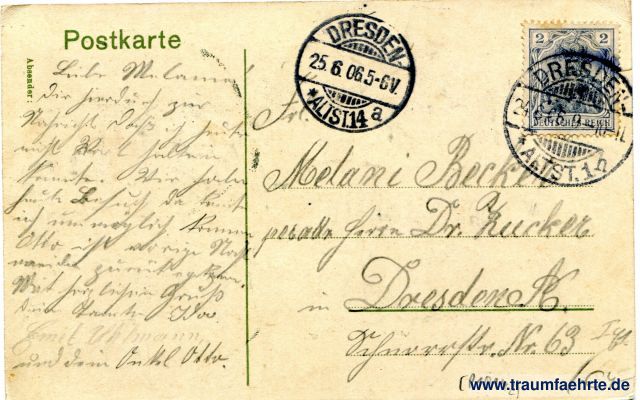 Postkarte
Absender:
Liebe Melanie
Dir hierdurch zur
Nachricht daß ich heute
nicht Wort halten
konnte. Wir haben
heute Besuch da kann
ich unmöglich kommen
Otto ist vorige Nacht
zurück
Mit herzlichem Gruß
dein Tante Ida
Emil
und dein Onkel Otto.
DRESDEN-
25.6.06.5-6V.
*ALTST.14a
2 2
DEUTSCHES REICH
DRESDEN-
*ALTST.14
Frl.
Melani
per adr. Herrn Dr. Zucker
in Dresden A.
Schnorrstr. Nr. 63
www.traumfaehrte.de